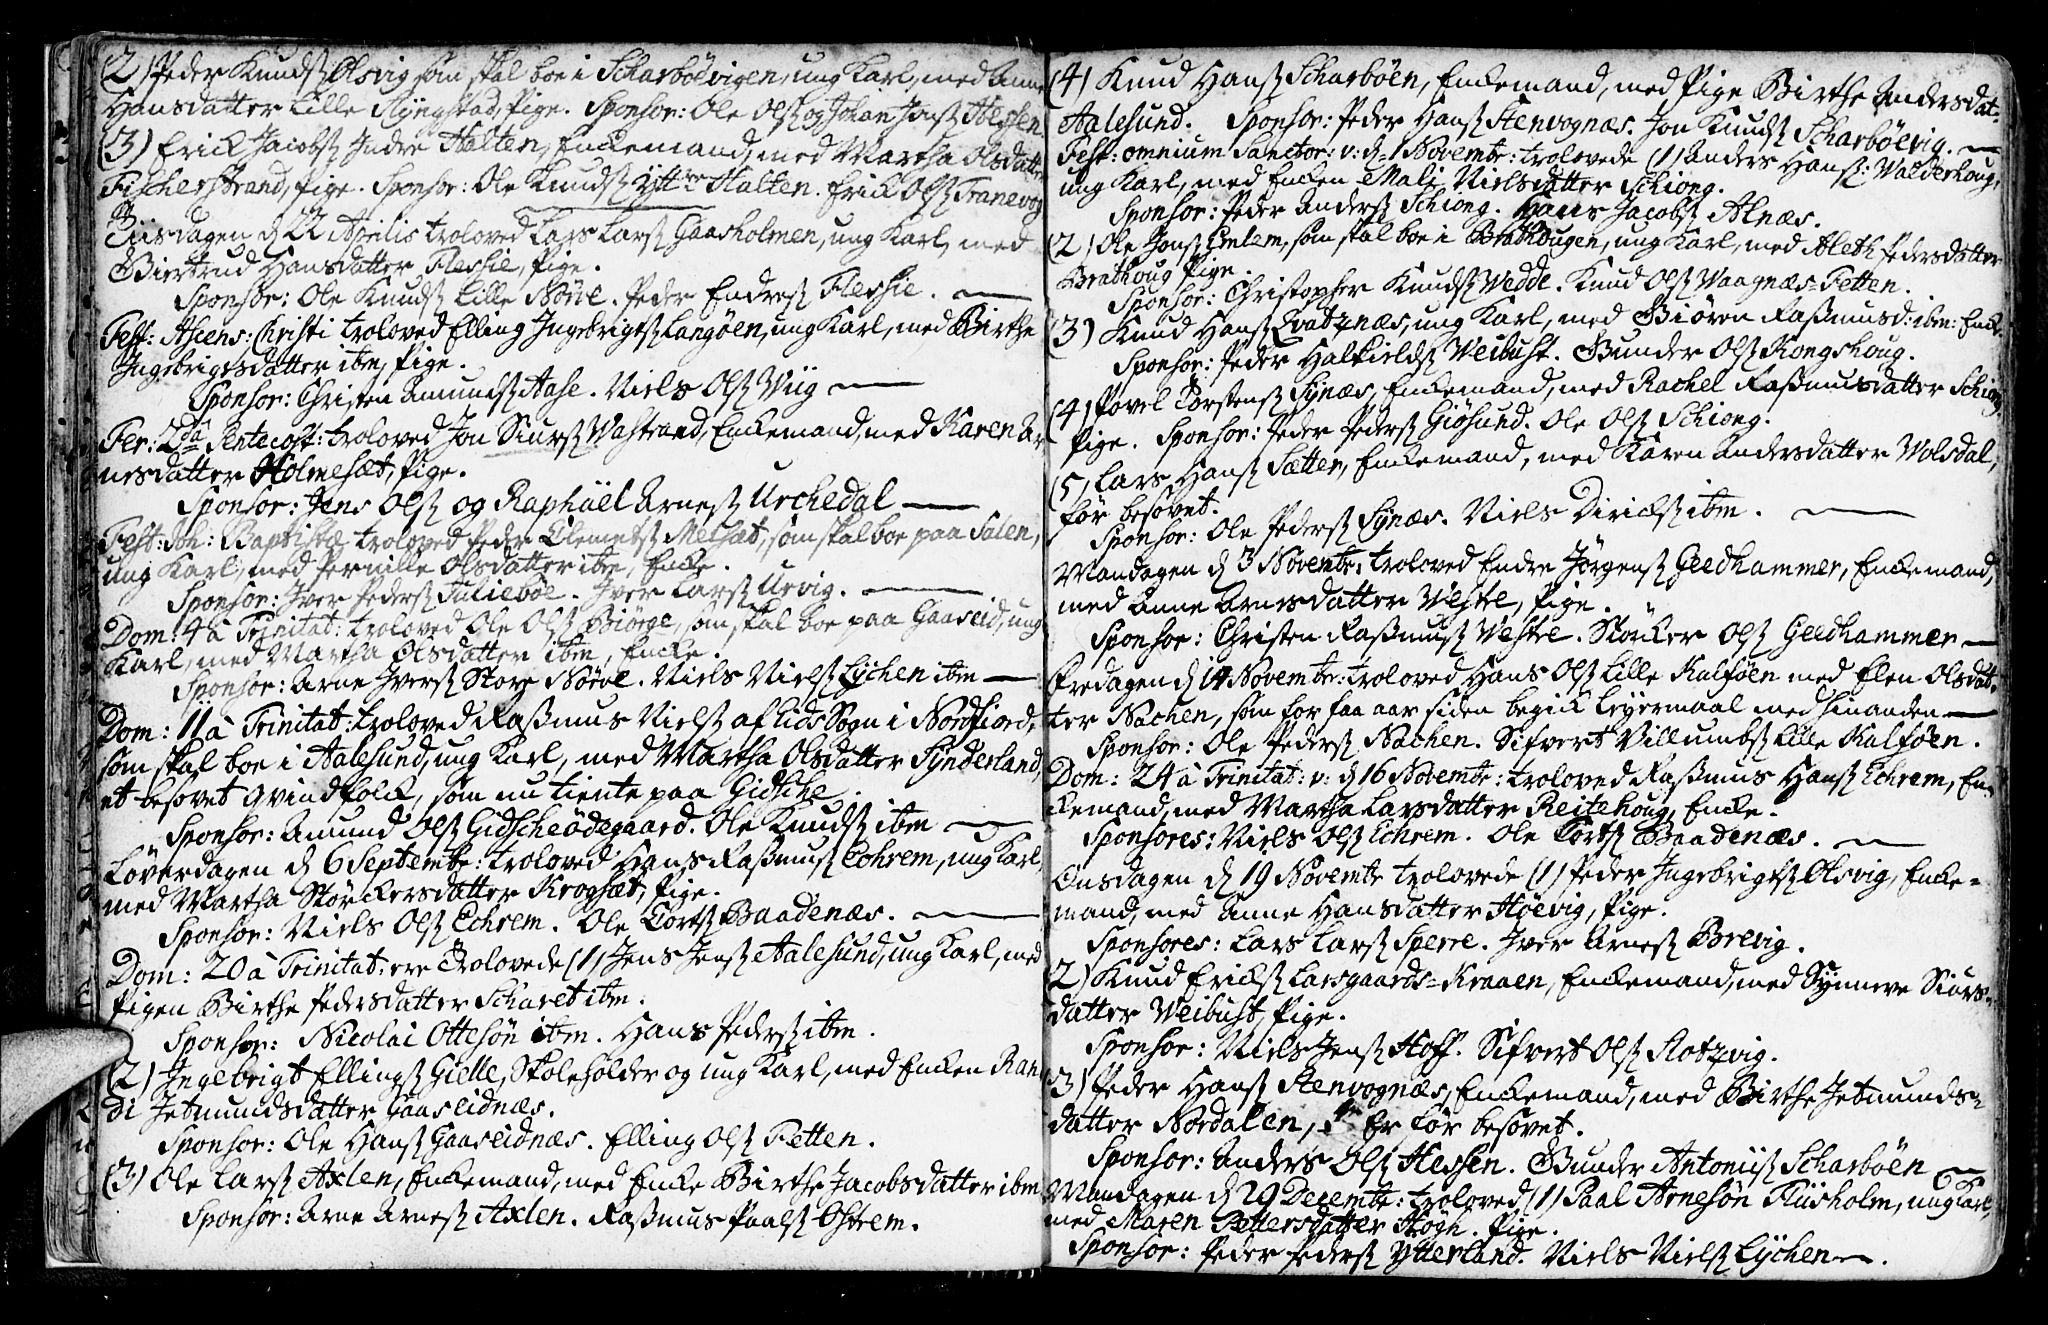 2) Peder Knuds. Olsvig som skal boe i Scharböevigen, ung Karl, med Anne
Hansdatter Lille Slyngstad, Pige. Sponsor: Ole Ols. og Johan Jons. Hessen
(3) Erick Jacobs. Indre Halten, Enckemand, med Martha Olsdatter
Fischerstrand, Pige. Sponsor: Ole Knuds. Yttre Halten. Erick Ols. Tranevog
Tiisdagen d 22 Aprilis troloved Lars Lars. Gaasholmen, ung Karl, med
Giertrud Hansdatter Flessie, Pige.
Sponsor: Ole Knuds. Lille Nörve. Peder Endres. Flessie.
Fest: Ascens: Christi troloved Elling Ingebrigts. Langöen, ung Karl, med Birthe
Ingebrigtsdatter ibm, Pige.
Sponsor: Christen Amunds. Aase. Niels Ols. Wiig
Fer: 2da Pentecost: troloved Jon Siurs. Wastrand, Enckemand, med Karen Ar
nesdatter Holmesæt, Pige.
Sponsor: Jens Ols. og Raphäel Arnes. Urchedal
Fest: Joh: Baptistæ troloved Peder Clemets. Melsæt, som skal boe paa Salen,
ung Karl, med Pernille Olsdatter ibm, Encke.
Sponsor: Iver Peders. Julieböe. Iver Lars. Urvig.
Dom: 4 à Trinitat: troloved Ole Ols. Biörge, som skal boe paa Gaaseid, ung
Karl, med Martha Olsdatter ibm, Encke.
Sponsor: Arne Ivers. Store Nörve. Niels Niels. Lychen ibm
Dom: 11 à Trinitat: troloved Rasmus Niels. af Eids Sogn i Nordfiord,
som skal boe i Aalesund, ung Karl, med Martha Olsdatter Synderland,
et besovet Qvindfolck, som nu tiente paa Gidsche.
Sponsor: Amund Ols. Gidscheödegaard. Ole Knuds. ibm
Löverdagen d 6 Septembr: troloved Hans Rasmus. Echrem, ung Karl,
med Martha Störckersdatter Krogsæt, Pige.
Sponsor: Niels Ols. Echrem. Ole Corts. Baadenæs.
Dom: 20 à Trinitat: ere Trolovede (1) Jens Jens. Aalesund, ung Karl, med
Pigen Birthe Pedersdatter Scharet ibm.
Sponsor: Nicolai Ottesön ibm. Hans Peders. ibm.
(2) Ingebrigt Ellings. Gielle, Skoleholder og ung Karl, med Encken Ran
di Jetmundsdatter Gaaseidnæs.
Sponsor: Ole Hans. Gaaseidnæs. Elling Ols. Fetten.
(3) Ole Lars. Axlen, Enckemand, med Encke Birthe Jacobsdatter ibm
Sponsor: Arne Arnes. Axlen. Rasmus Paals. Ostrem.
(4) Knud Hans. Scharböen, Enckemand, med Pige Birthe Andersdat:
Aalesund. Sponsor: Peder Hans. Stenvognæs. Jon Knuds. Scharböevig.
Fest: omnium Sanctor: v: d: 1 Novembr: trolovede (1) Anders Hans: Walderhoug,
ung Karl, med Encken Mali Nielsdatter Schiong.
Sponsor: Peder Anders. Schiong. Hans Jacobs. Alnæs.
(2) Ole Jons. Emlem, som skal boe i Brathougen, ung Karl, med Aleth Pedersdatter
Brathoug Pige.
Sponsor: Christopher Knuds. Wedde. Knud Ols. Waagnæs-Fetten.
(3) Knud Hans. Qvatznæs, ung Karl, med Giören Rasmusd: ibm: Encke
Sponsor: Peder Halkields. Weibust. Gunder Ols. Kongshoug.
(4) Povel Torstens. Synæs, Enckemand, med Rachel Rasmusdatter Schiong,
Pige. Sponsor: Peder Peders. Giösund. Ole Ols. Schiong.
(5) Lars Hans. Sætter, Enckemand, med Karen Andersdatter Wolsdal,
för besovet.
Sponsor: Ole Peders. Synæs. Niels Diricks. ibm.
Mandagen d 3 Novembr: troloved Endre Jörgens. Geedhammer, Enckemand,
med Anne Arnesdatter Westre, Pige.
Sponsor: Christen Rasmus. Westre. Störker Ols. Geedhammer
Fredagen d 14 Novembr: troloved Hans Ols. Lille Kalföen med Elen Olsdat,
ter Nachen, som for faa aar siden begick Leyermaal med hinanden
Sponsor: Ole Peders. Nachen. Sifvert Villumbs. Lille Kalföen.
Dom: 24 à Trinitat: v: d 16 Novembr: troloved Rasmus Hans. Echrem, En-
ckemand, med Martha Larsdatter Reitehoug, Encke.
Sponsores: Niels Ols. Echrem. Ole Corts. Baadenæs.
Onsdagen d 19 Novembr trolovede (1) Peder Ingebrigts. Olsvig, Encke-
mand, med Anne Hansdatter Höevig, Pige.
Sponsores: Lars Lars. Sperre. Iver Arnes. Brevig.
2) Knud Ericks. Larsgaards-Kraaen, Enckemand, med Synneve Siurs-
datter Weibust, Pige.
Sponsor: Niels Jens. Hoff. Sifvert Ols. Slotzvig.
3) Peder Hans. Stenvognæs, Enckemand, med Birthe Jetmunds-
datter Nordalen, Er för besovet.
Sponsor: Anders Ols. Hessen. Gunder Antonii. Scharböen
Mandagen d 29 Decembr: troloved (1) Paal Arnesön Fliisholm, ung Karl,
med Maren Pettersdatter Högh. Pige.
Sponsor: Peder Peders. Ytterland. Niels Niels. Lÿchen.